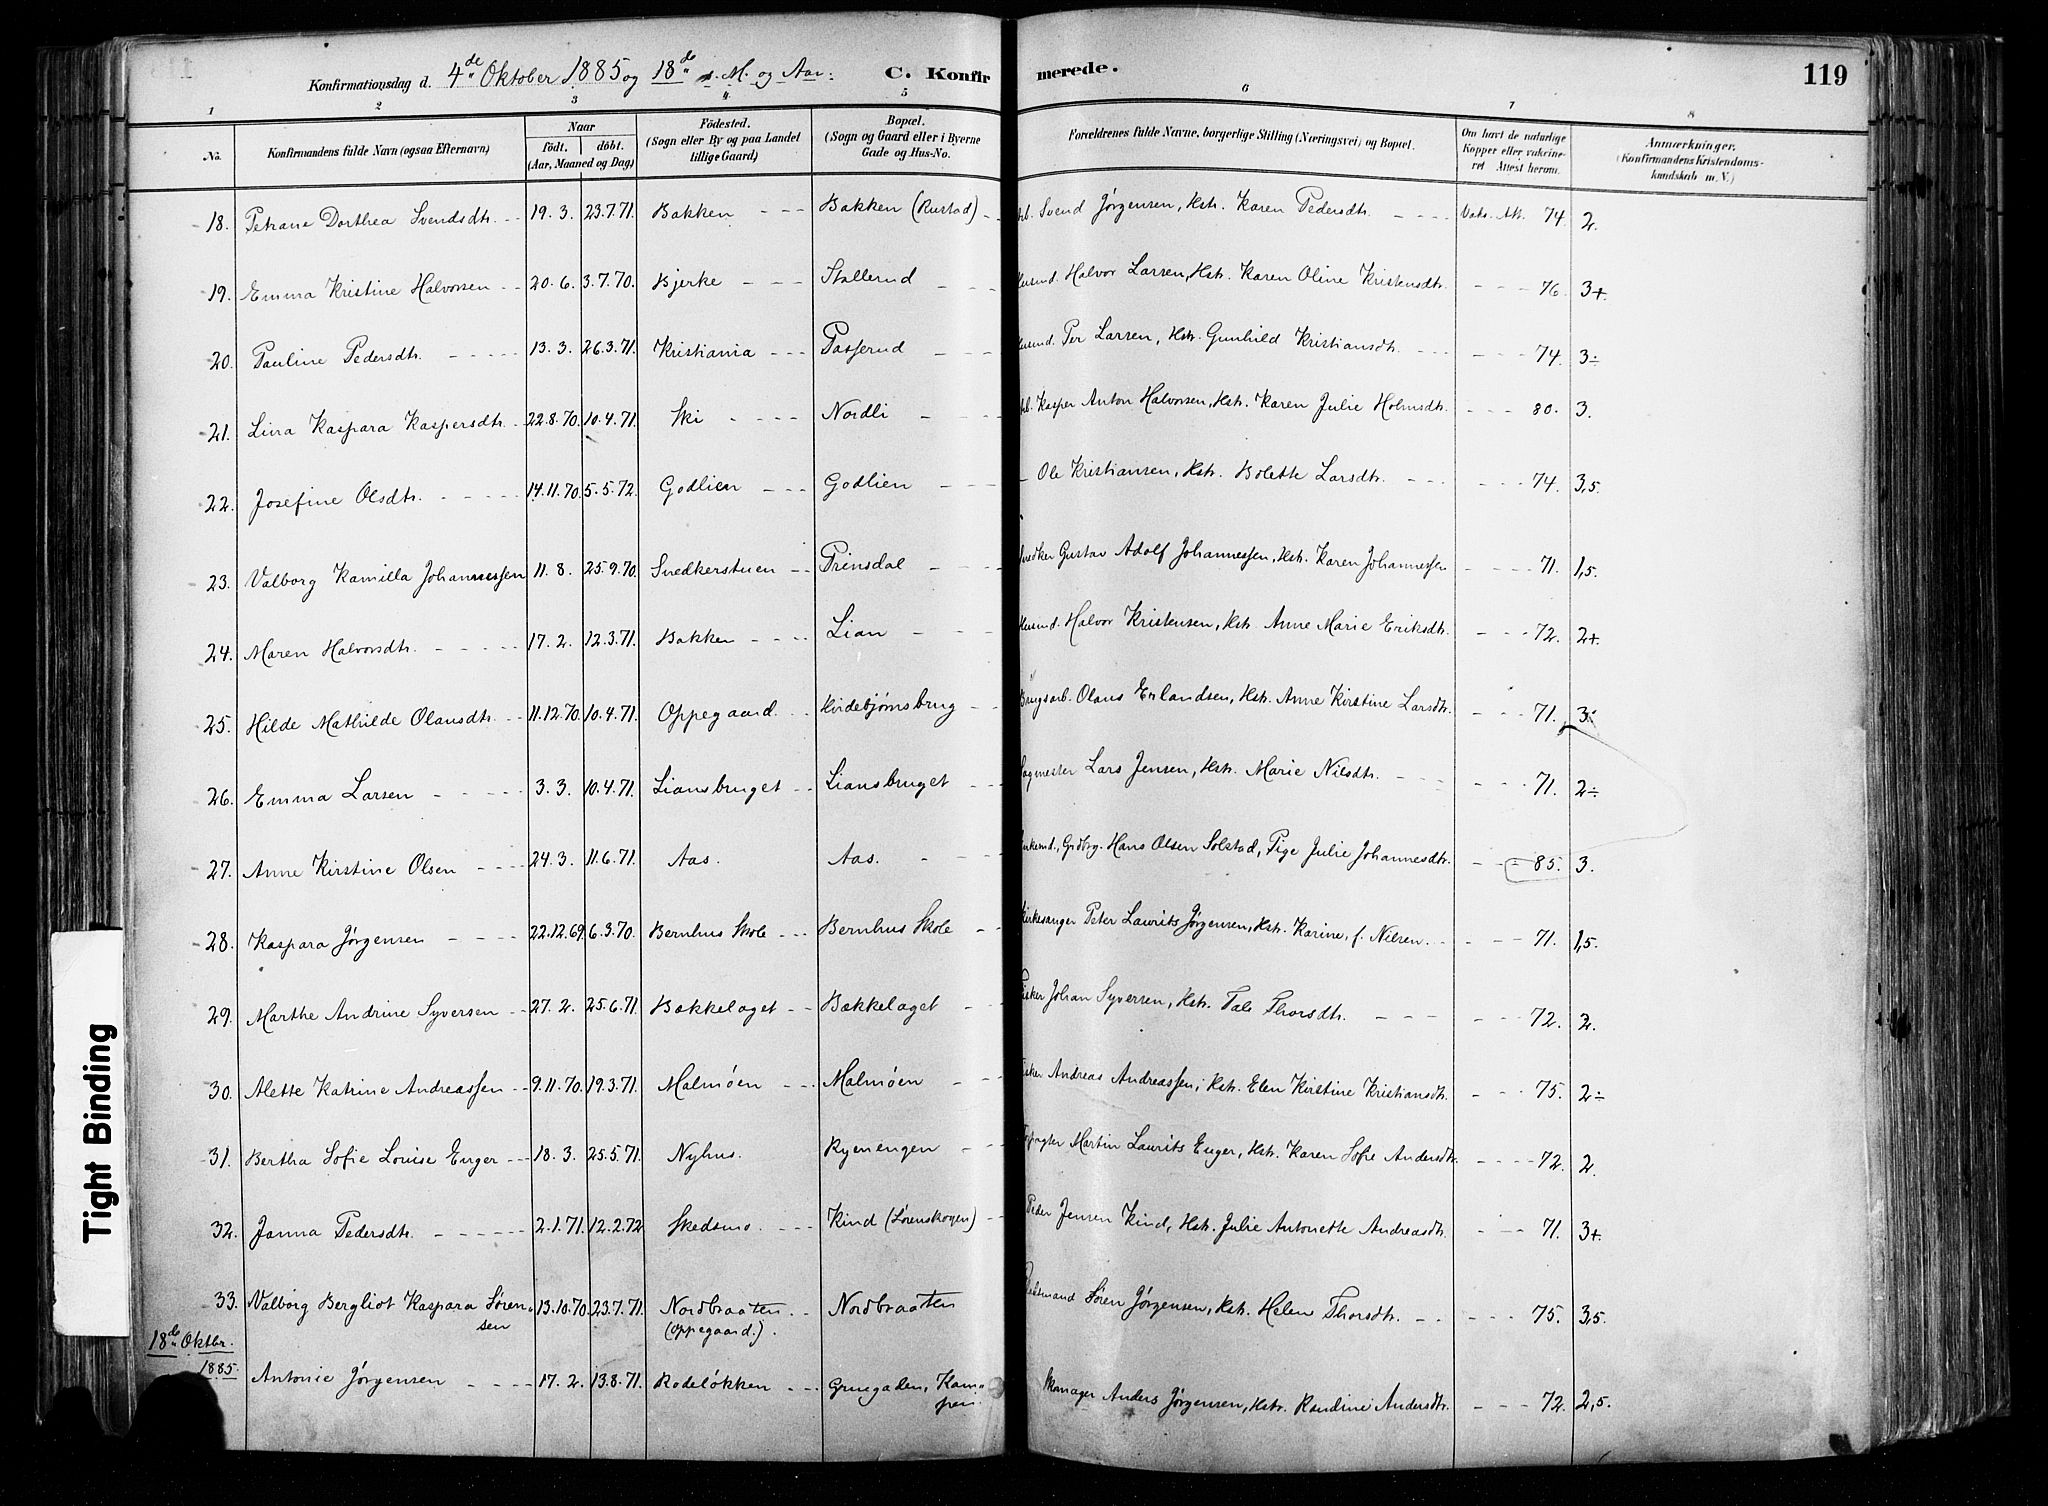 Konfirmationsdag d. 4de Oktober 1885 og 18de s. M. og Aar: C. Konfir merede. 119
1 2 3 4 5 6 7 8
No. Konfirmandens fulde Navn (ogsaa Efternavn) Naar födt. döbt. (Aar, Maaned og Dag) Födested. (Sogn eller By og paa Landet tillige Gaard) Bopæl. (Sogn og Gaard eller i Byerne Gade og Hus-No. Forældrenes fulde Navne, borgerlige Stilling (Næringsvei) og Bopæl. Om havt de naturlige Kopper eller vakcineret Attest herom. Anmærkninger. (Konfirmandens Kristendomskundskab m. V.)
18. Petrane Dorthea Svendsdtr. 19. 3. 23.7.71. Bakken Bakken (Rustad) Arb. Svend Jørgensen, Hstr. Karen Pedersdtr. Vaks. Att. 74. 2.
19. Emma Kristine Halvorsen 20. 6. 3.7.70. Bjerke Stallerud Husmd. Halvor Larsen, Hstr. Karen Oline Kristensdtr. 76. 3+.
20. Pauline Pedersdtr. 13. 3. 26.3.71. Kristiania Passerud Husmd. Per Larsen, Hstr. Gunhild Kristiansdtr. 74. 3÷
21. Lina Kaspara Kaspersdtr. 22.8.70. 10.4.71. Ski Nordli Arb. Kasper Anton Halvorsen, Hstr. Karen Julie Holmsdtr. 80. 3.
22. Josefine Olsdtr. 14.11.70. 5.5.72. Godlien Godlien Ole Kristiansen, Hstr. Bolette Larsdtr. 74. 3,5.
23. Valborg Kamilla Johannessen 11. 8. 25.9.70. Snedkerstuen Prinsdal Snedker Gustav Adolf Johannessen, Hstr. Karen Johannessen 71. 1,5.
24. Maren Halvorsdtr. 17. 2. 12.3.71. Bakken Lian Husmd. Halvor Kristensen, Hstr. Anne Marie Eriksdtr. 72. 2+.
25. Hilde Mathilde Olausdtr. 11.12.70. 10.4.71. Oppegaard. Hvidebjørnsbrug Brugsarb. Olaus Erlandsen, Hstr. Anne Kirstine Larsdtr. 71. 3÷
26. Emma Larsen 3. 3. 10.4.71. Liansbruget Liansbruget Sagmester Lars Jensen, Hstr. Marie Nilsdtr. 71. 2÷
27. Anne Kirstine Olsen 24. 3. 11.6.71. Aas. Aas. Grdbrg. Hans Olsen Solstad, Pige Julie Johannesdtr. 85. 3.
28. Kaspara Jørgensen 22.12.69. 6.3.70. Bernhus Skole Bernhus Skole Kirkesanger Peter Laurits Jørgensen, Hstr. Karine, f. Nilsen. 71. 1,5.
29. Marthe Andrine Syversen 27. 2. 25.6.71. Bækkelaget Bækkelaget Fisker Johan Syversen, Hstr. Tale Thorsdtr. 72. 2.
30. Alette Katrine Andreassen 9.11.70. 19.3.71. Malmøen Malmøen Fisker Andreas Andreassen, Hstr. Elen Kirstine Kristiansdtr. 75. 2÷
31. Bertha Sofie Louise Enger 18. 3. 25.5.71. Nyhus. Ryenengen Martin Laurits Enger, Hstr. Karen Sofie Andersdtr. 72. 2.
32. Janna Pedersdtr. 2.1.71. 12.2.72 Skedsmo. Kind (Lørenskogen) Peder Jensen Kind, Hstr. Julie Antonette Andreasdtr. 71. 3+.
33. Valborg Bergliot Kaspara Sörensen 13.10.70. 23.7.71. Nordbraaten (Oppegaard.). Nordbraaten Sören Jørgensen, Hstr. Helene Thorsdtr. 75. 3,5.
18de Oktbr. 1885. Antonie Jørgensen 17. 2. 13.8.71. Rodeløkken Grueגaden, Kampen. Anders Jørgensen, Hstr. Randine Andersdtr. 72. 2,5.
Tight Binding